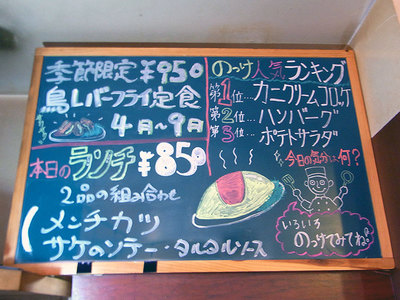 季節限定 ¥950
鳥レバーフライ定食
4月～9月
本日のランチ ¥850
2品の組み合わせ
メンチカツ
サケのソテー・タルタルソース
のっけ人気ランキング
第1位…カニクリームコロッケ
第2位…ハンバーグ
第3位…ポテトサラダ
今日の気分は何？
いろいろ
のっけてみてね!